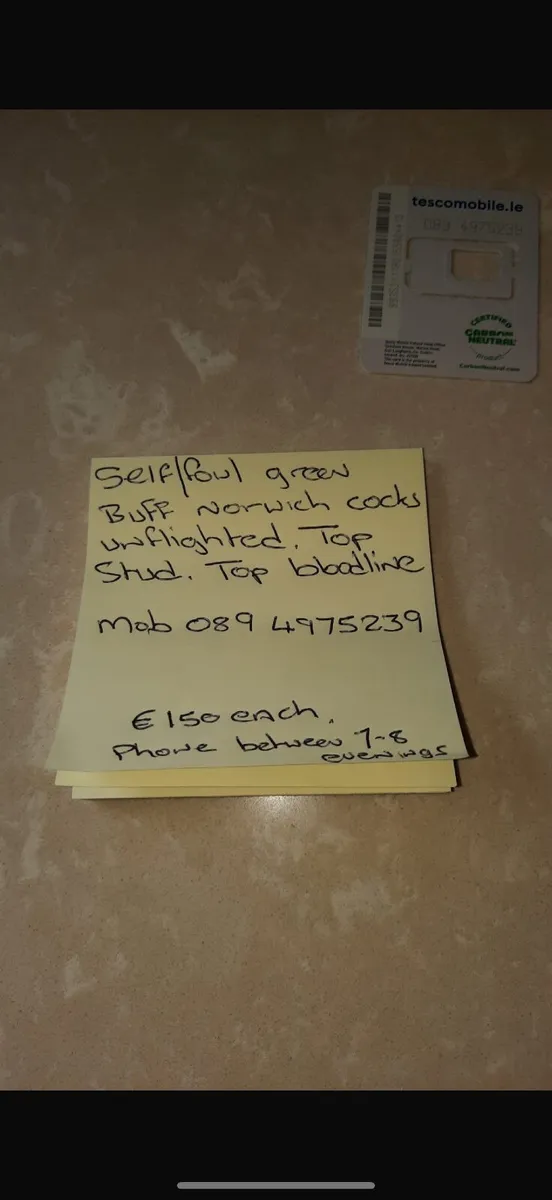 tescomobile.ie
089 4975239
CERTIFIED
CARBON
NEUTRAL
PRODUCT
CarbonNeutral.com
Self/fowl green
Buff Norwich cocks
unflighted. Top
Stud. Top bloodline
Mob 089 4975239
€150 each.
Phone between 7-8
evenings